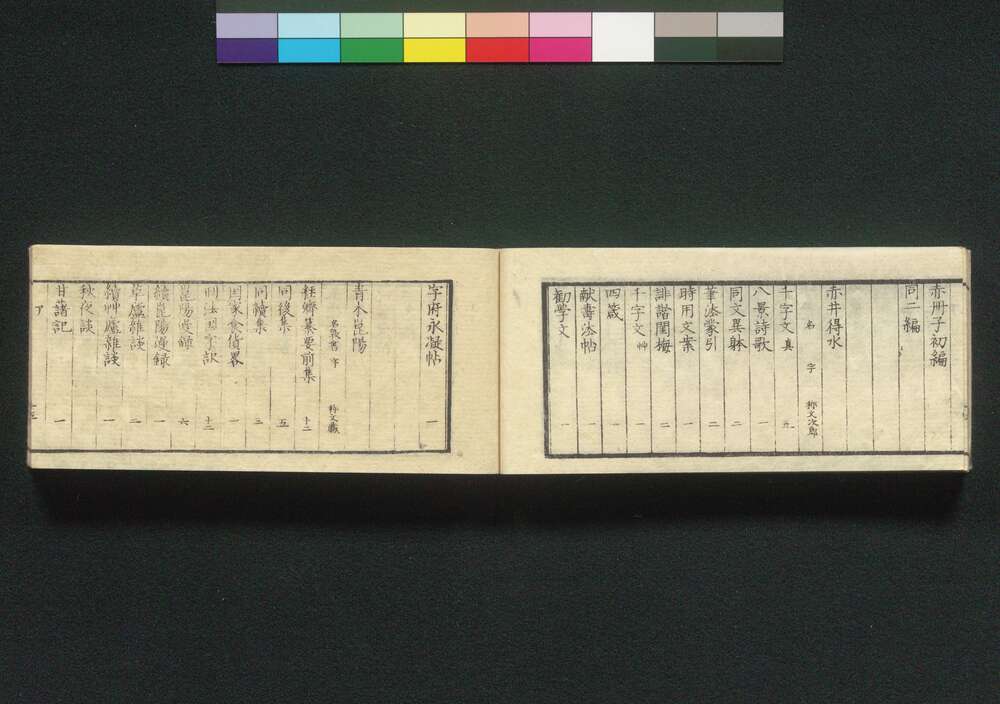 赤冊子初編
同二編
赤井得水
名 字 称文次郎
千字文 真 五
八景詩歌 一
同文異躰 二
筆法蒙引 二
時用文案 一
誹諧閨梅 二
千字文 艸 一
四箴 一
献壽法帖 一
勧學文 一
字府永凝帖 一
青木昆陽
名敦書 字 称文蔵
経濟纂要前集 十二
同後集 五
同續集 三
国家食貨畧 一
十二
昆陽漫録 六
續昆陽漫録 一
草廬雑談 二
續艸廬雑談 一
秋夜談
甘藷記 一
ア